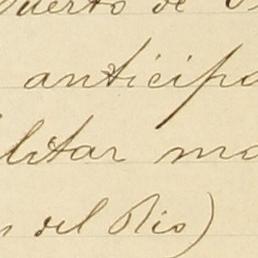 puerto de
anticipa
ilitar ma
del Rio)